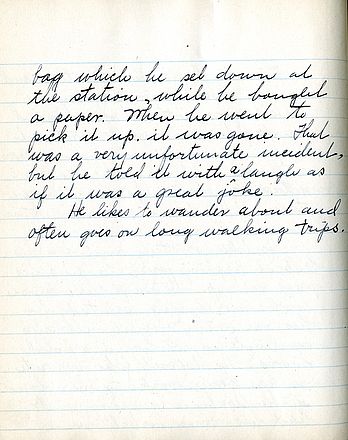 bag which he set down at
the station, while he bought
a paper. When he went to
pick it up, it was gone. That
was a very unfortunate incident,
but he told it with a laugh as
if it was a great joke.
He likes to wander about and
often goes on long walking trips.